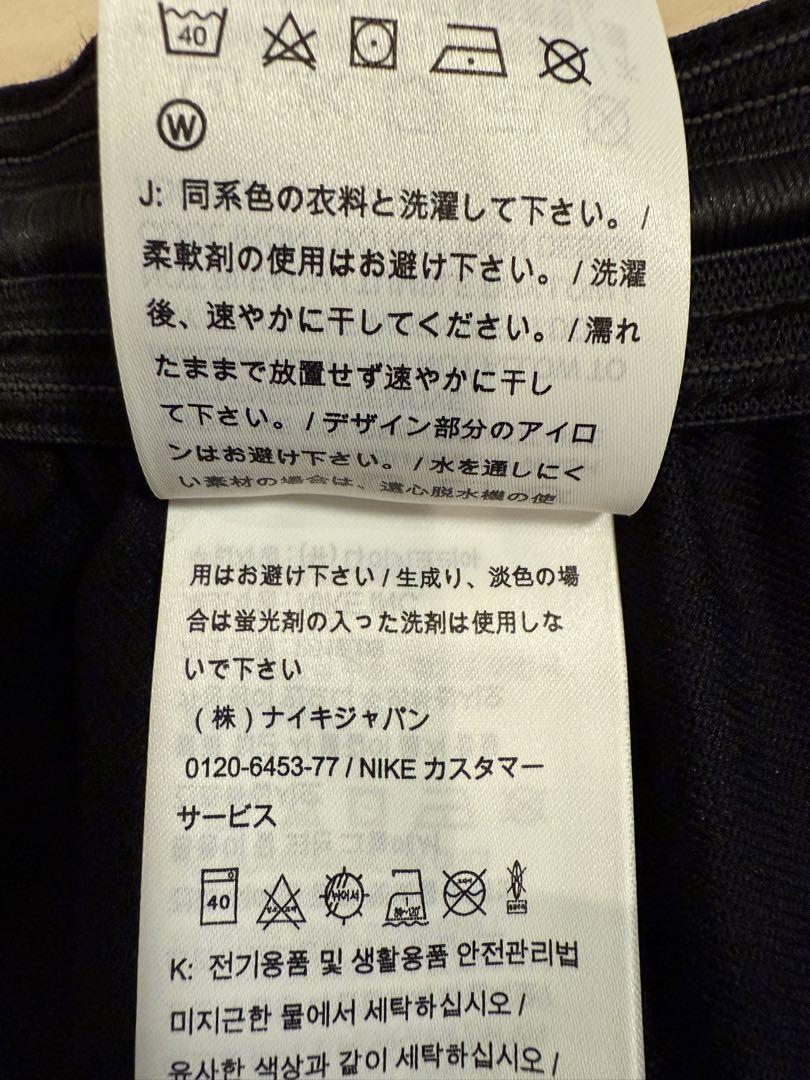 40
W
J: 同系色の衣料と洗濯して下さい。/
柔軟剤の使用はお避け下さい。/ 洗濯
後、速やかに干してください。/ 濡れ
たままで放置せず速やかに干し
て下さい。/ デザイン部分のアイロ
ンはお避け下さい。/ 水を通しにく
い素材の場合は、遠心脱水機の使
用はお避け下さい / 生成り、淡色の場
合は蛍光剤の入った洗剤は使用しな
いで下さい
(株) ナイキジャパン
0120-6453-77 / NIKE カスタマー
サービス
40
K: 전기용품 및 생활용품 안전관리법
미지근한 물에서 세탁하십시오 /
유사한 색상과 같이 세탁하십시오 /